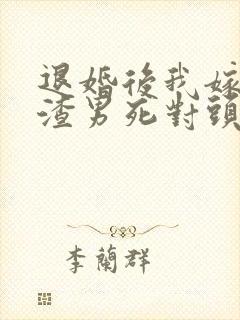 退婚後我嫁
渣男死對頭
李蘭群